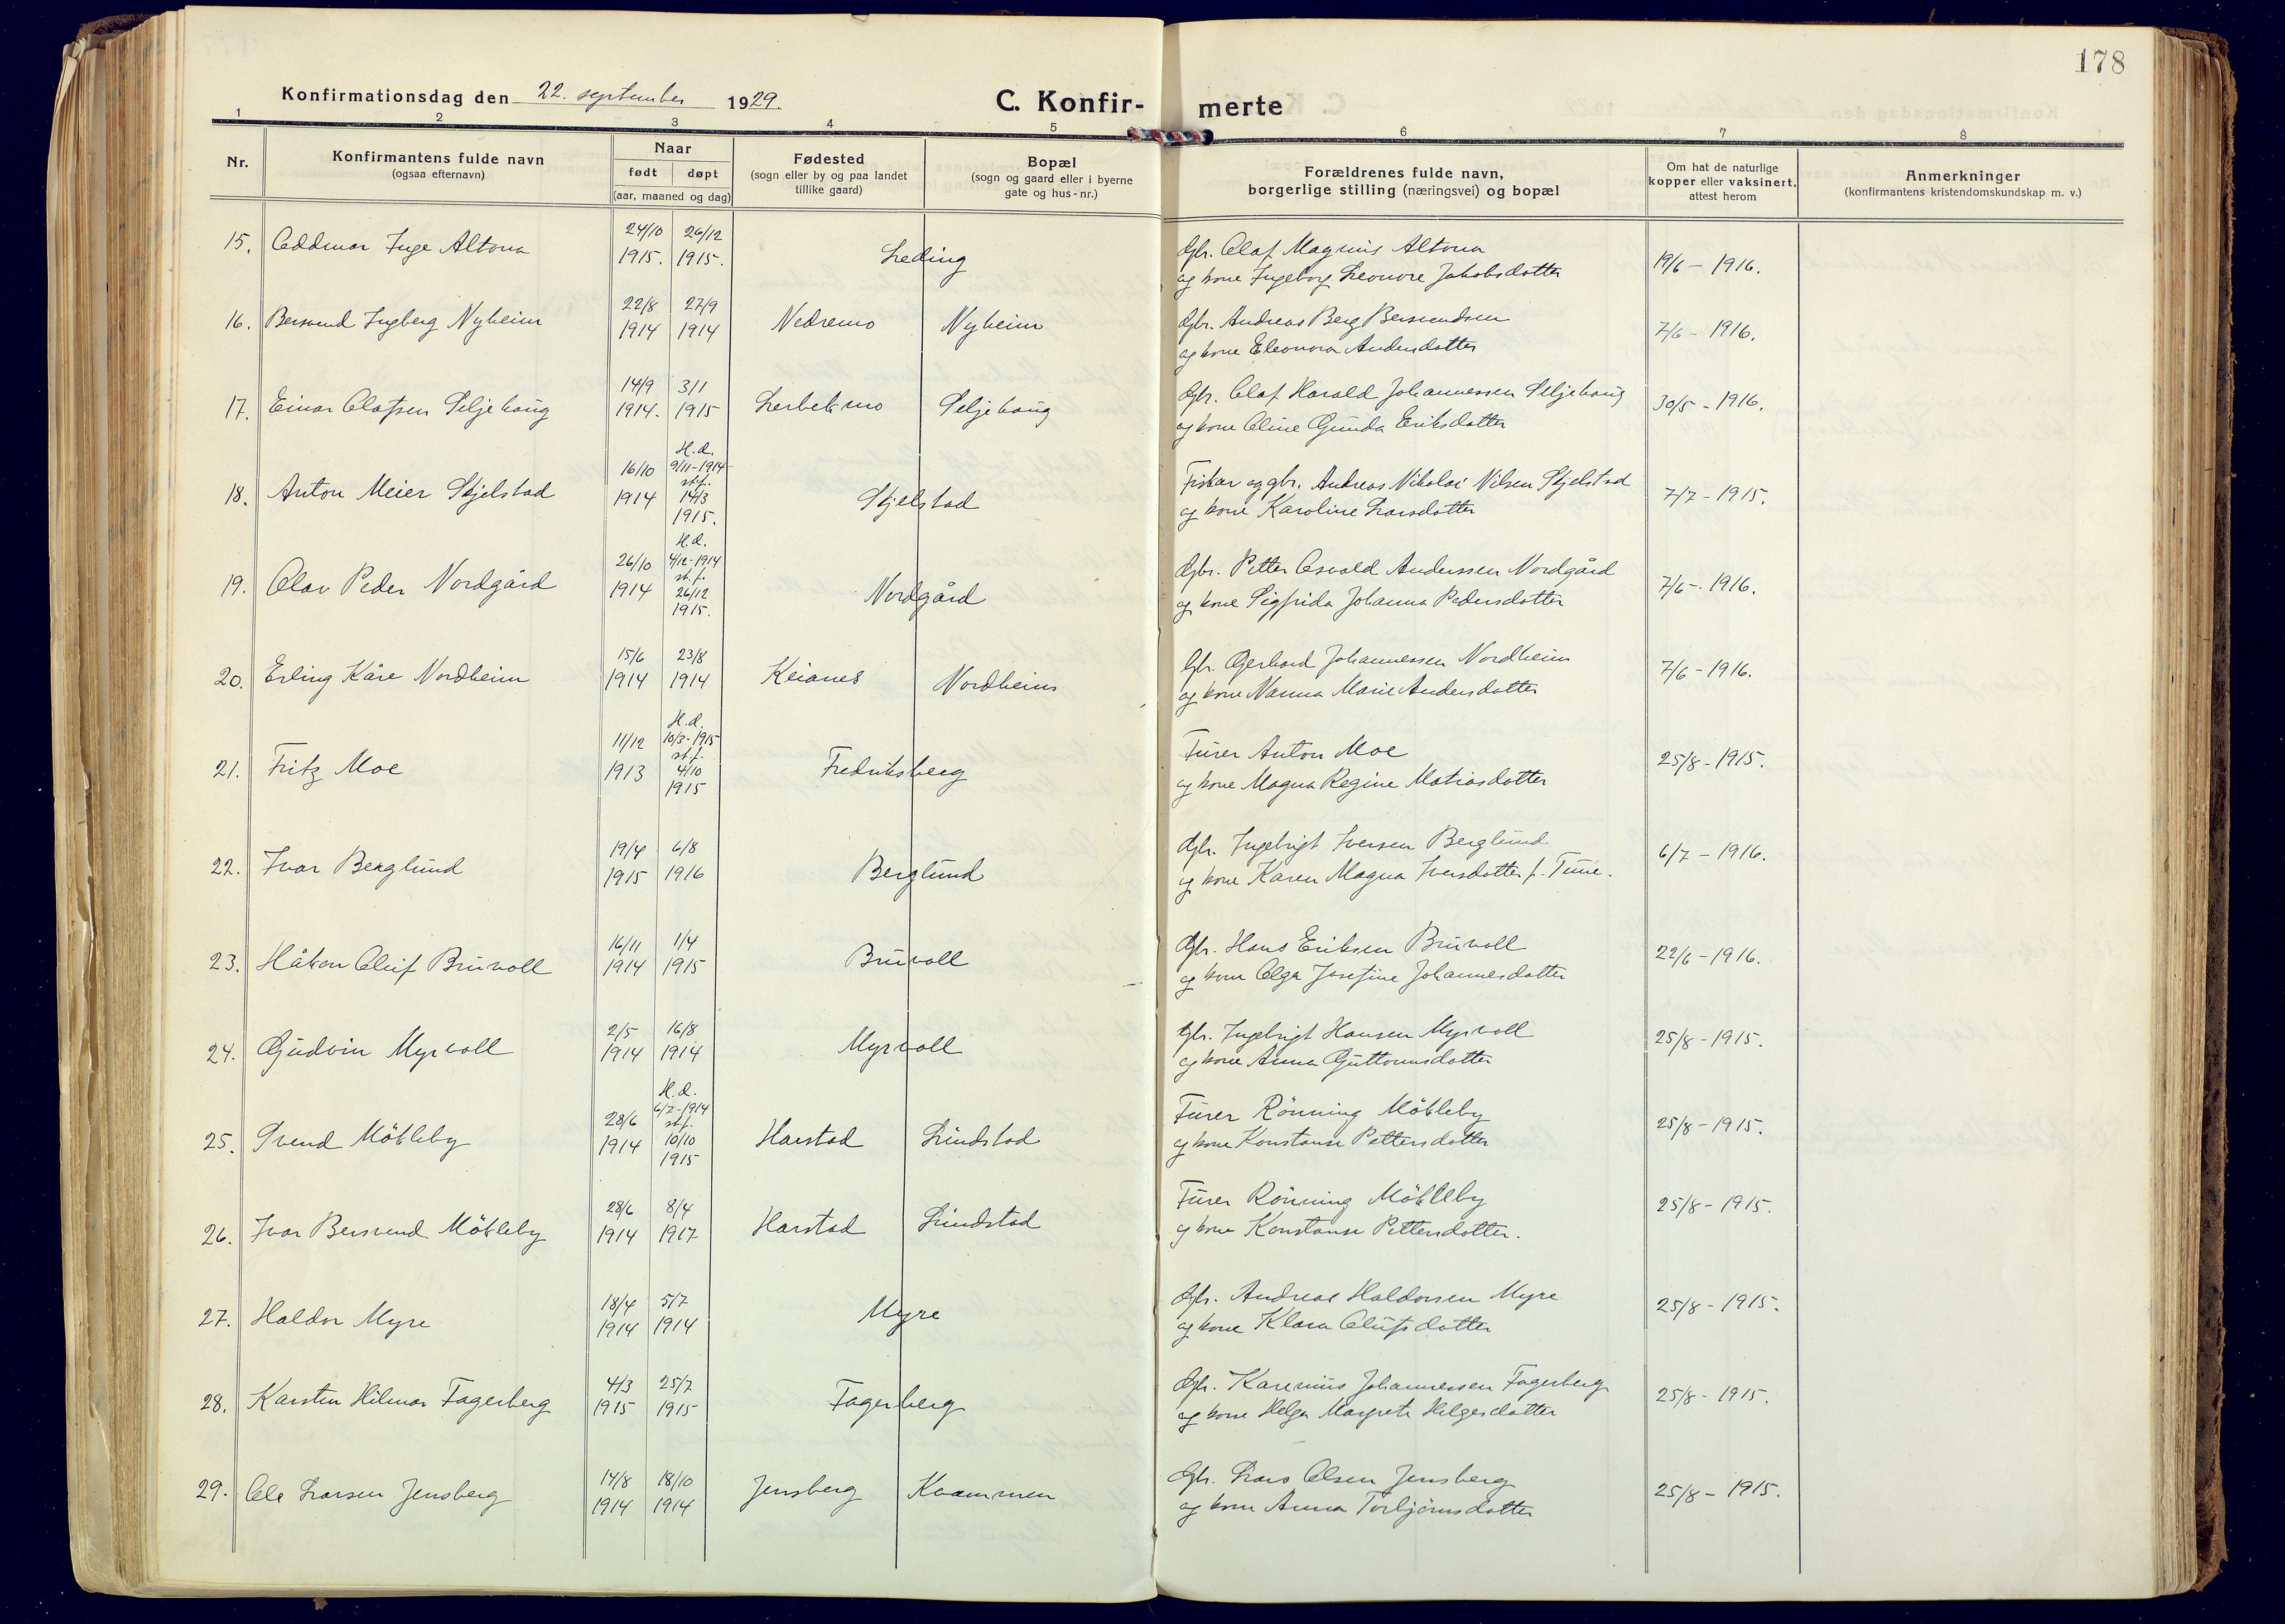 178
Konfirmationsdag den 22. september 1929. C. Konfir- merte
1 2 3 4 5 6 7 8
Nr.
Konfirmantens fulde navn
(ogsaa efternavn)
Naar
født døpt
(aar, maaned og dag)
Fødested
(sogn eller by og paa landet
tillike gaard)
Bopæl
(sogn og gaard eller i byerne
gate og hus-nr.)
Forældrenes fulde navn,
borgerlige stilling (næringsvei) og bopæl
Om hat de naturlige
kopper eller vaksinert,
attest herom
Anmerkninger
(konfirmantens kristendomskundskap m. v.)
15. Oddmar Inge Altona 24/10 1915. 26/12 1915. Leding
Gbr. Olaf Magnus Altona
og kone Ingeborg Leonore Jakobsdatter 19/6 - 1916.
16. Bersvend Ingberg Nyheim 22/8 1914 27/9 1914 Nedremo Nyheim
Gbr. Andreas Berg Bersvendsen
og kone Eleonora Andersdatter 7/6 - 1916.
17. Einar Olafsen Seljehaug 14/9 1914. 3/1 1915 Lerbekmo Seljehaug
Gbr. Olaf Harald Johannessen Seljehaug
og kone Oline Gunda Eriksdatter 30/5 - 1916.
18. Anton Meier Skjelstad 16/10 1914 H.d. 9/11-1914 st.f. 14/3 1915. Skjelstad
Fisker og gbr. Andreas Nikolai Nilsen Skjelstad
og kone Karoline Larsdatter 7/7 - 1915.
19. Olav Peder Nordgård 26/10 1914 H.d. 4/12-1914 st.f. 26/12 1915. Nordgård
Gbr. Petter Osvald Anderssen Nordgård
og kone Sigfrida Johanna Pedersdatter 7/6 - 1916.
20. Erling Kåre Nordheim 15/6 1914 23/8 1914 Keianes Nordheim
Gbr. Gerhard Johannessen Nordheim
og kone Nanna Marie Andersdatter 7/6 - 1916.
21. Fritz Moe 11/12 1913 H.d. 10/3-1915 st.f. 4/10 1915 Fredriksberg
Furer Anton Moe
og kone Magna Regine Matiasdatter 25/8 - 1915.
22. Ivar Berglund 19/4 1915 6/8 1916 Berglund
Gbr. Ingebrigt Iversen Berglund
og kone Karen Magna Iversdatter f. Tune. 6/7 - 1916.
23. Håkon Oluf Bruvoll 16/11 1914 1/4 1915 Bruvoll
Gbr. Hans Eriksen Bruvoll
og kone Olga Josefine Johannesdatter 22/6 - 1916.
24. Gudvin Myrvoll 2/5 1914 16/8 1914 Myrvoll
Gbr. Ingebrigt Hansen Myrvoll
og kone Anna Guttormsdatter 25/8 - 1915.
25. Svend Mökleby 28/6 1914 H.d. 6/7-1914 st.f. 10/10 1915 Harstad Lindstad
Furer Rönning Mökleby
og kone Konstanse Pettersdatter 25/8 - 1915.
26. Ivar Bersvend Mökleby 28/6 1914 8/4 1917 Harstad Lindstad
Furer Rönning Mökleby
og kone Konstanse Pettersdatter. 25/8 - 1915.
27. Haldor Myre 18/4 1914 5/7 1914 Myre
Gbr. Andreas Haldorsen Myre
og kone Klara Olufsdatter 25/8 - 1915.
28. Karsten Hilmar Fagerberg 4/3 1915 25/7 1915 Fagerberg
Gbr. Karenius Johannessen Fagerberg
og kone Helga Margrete Helgesdatter 25/8 - 1915.
29. Ole Larsen Jensberg 14/8 1914 18/10 1914 Jensberg Kvammen
Gbr. Lars Olsen Jensberg
og kone Anna Torbjörnsdatter 25/8 - 1915.